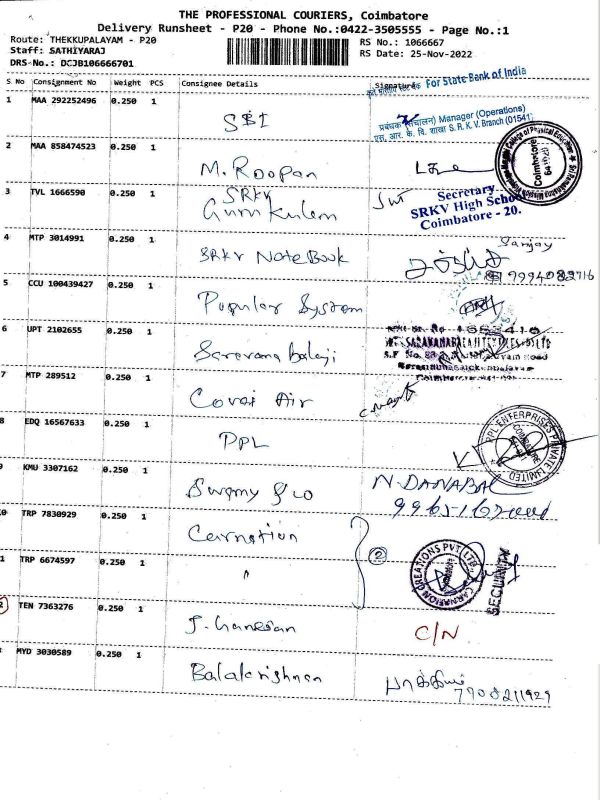 THE PROFESSIONAL COURIERS, Coimbatore
Delivery Runsheet - P20 - Phone No.:0422-3505555 - Page No.:1
Route: THEKKUPALAYAM - P20 RS No.: 1066667
Staff: SATHIYARAJ RS Date: 25-Nov-2022
DRS-No.: DCJB106666701
S. No Consignment No Weight PCS Consignee Details Signature
For State Bank of India
1 MAA 292252496 0.250 1 SBI
प्रबंधक (संचालन) Manager (Operations)
एस. आर. के. वि. शाखा S. R. K. V. Branch (01541)
2 MAA 858474523 0.250 1 M. Roopan
Coimbatore
3 TVL 1666590 0.250 1 SRKV Gurukulam
Secretary
SRKV High School
Coimbatore - 20.
4 MTP 3014991 0.250 1 SRKV NoteBook
Sanjay
5 CCU 100439427 0.250 1 Popular System
6 UPT 2102655 0.250 1 Saravana balaji
7 MTP 289512 0.250 1 Covai Air
8 EDQ 16567633 0.250 1 PPL
RPL ENTERPRISES PRIVATE LIMITED
COIMBATORE
9 KMU 3307162 0.250 1 Swamy & co
N. DANABAL
0 TRP 7830929 0.250 1 Carnation
2
1 TRP 6674597 0.250 1 "
CARNATION CREATIONS PVT LTD
SECURITY
2 TEN 7363276 0.250 1 J. Ganesan C/N
MYD 3030589 0.250 1 Balakrishnan
7908211929